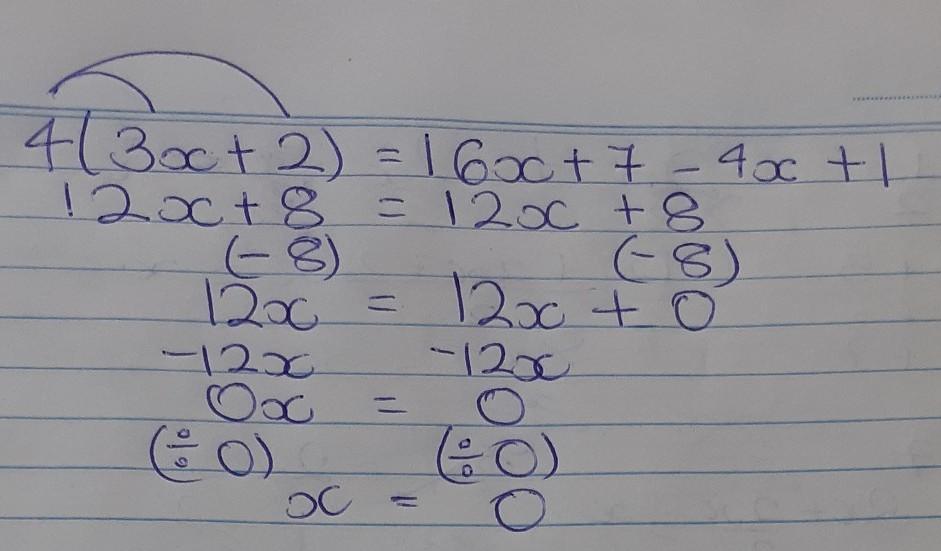 4(3x + 2) = 16x + 7 - 4x + 1
12x + 8 = 12x + 8
(- 8) (- 8)
12x = 12x + 0
-12x -12x
0x = 0
(÷ 0) (÷ 0)
x = 0